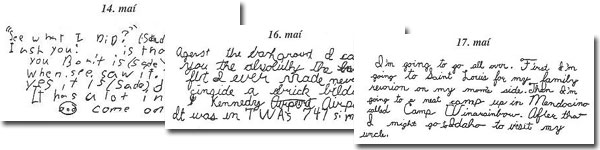 14. maí
"See what I Did?"
I ask you! is tha
you Don't is
when see saw it.
yes it is
It has a lot in
come on
16. maí
Agenst the background I ca
you the absolutlly the
I ever made neve
inside a brick bilde
Kennedy Airp
It was in TWAs 747
17. maí
I'm going to go all over. First I'm
going to Saint Louis for my family
reunion on my mom's side. Then I'm
going to a neat camp up in Mendocino
called Camp Winarainbow. After tha
I might go to Idaho to visit my
uncle.